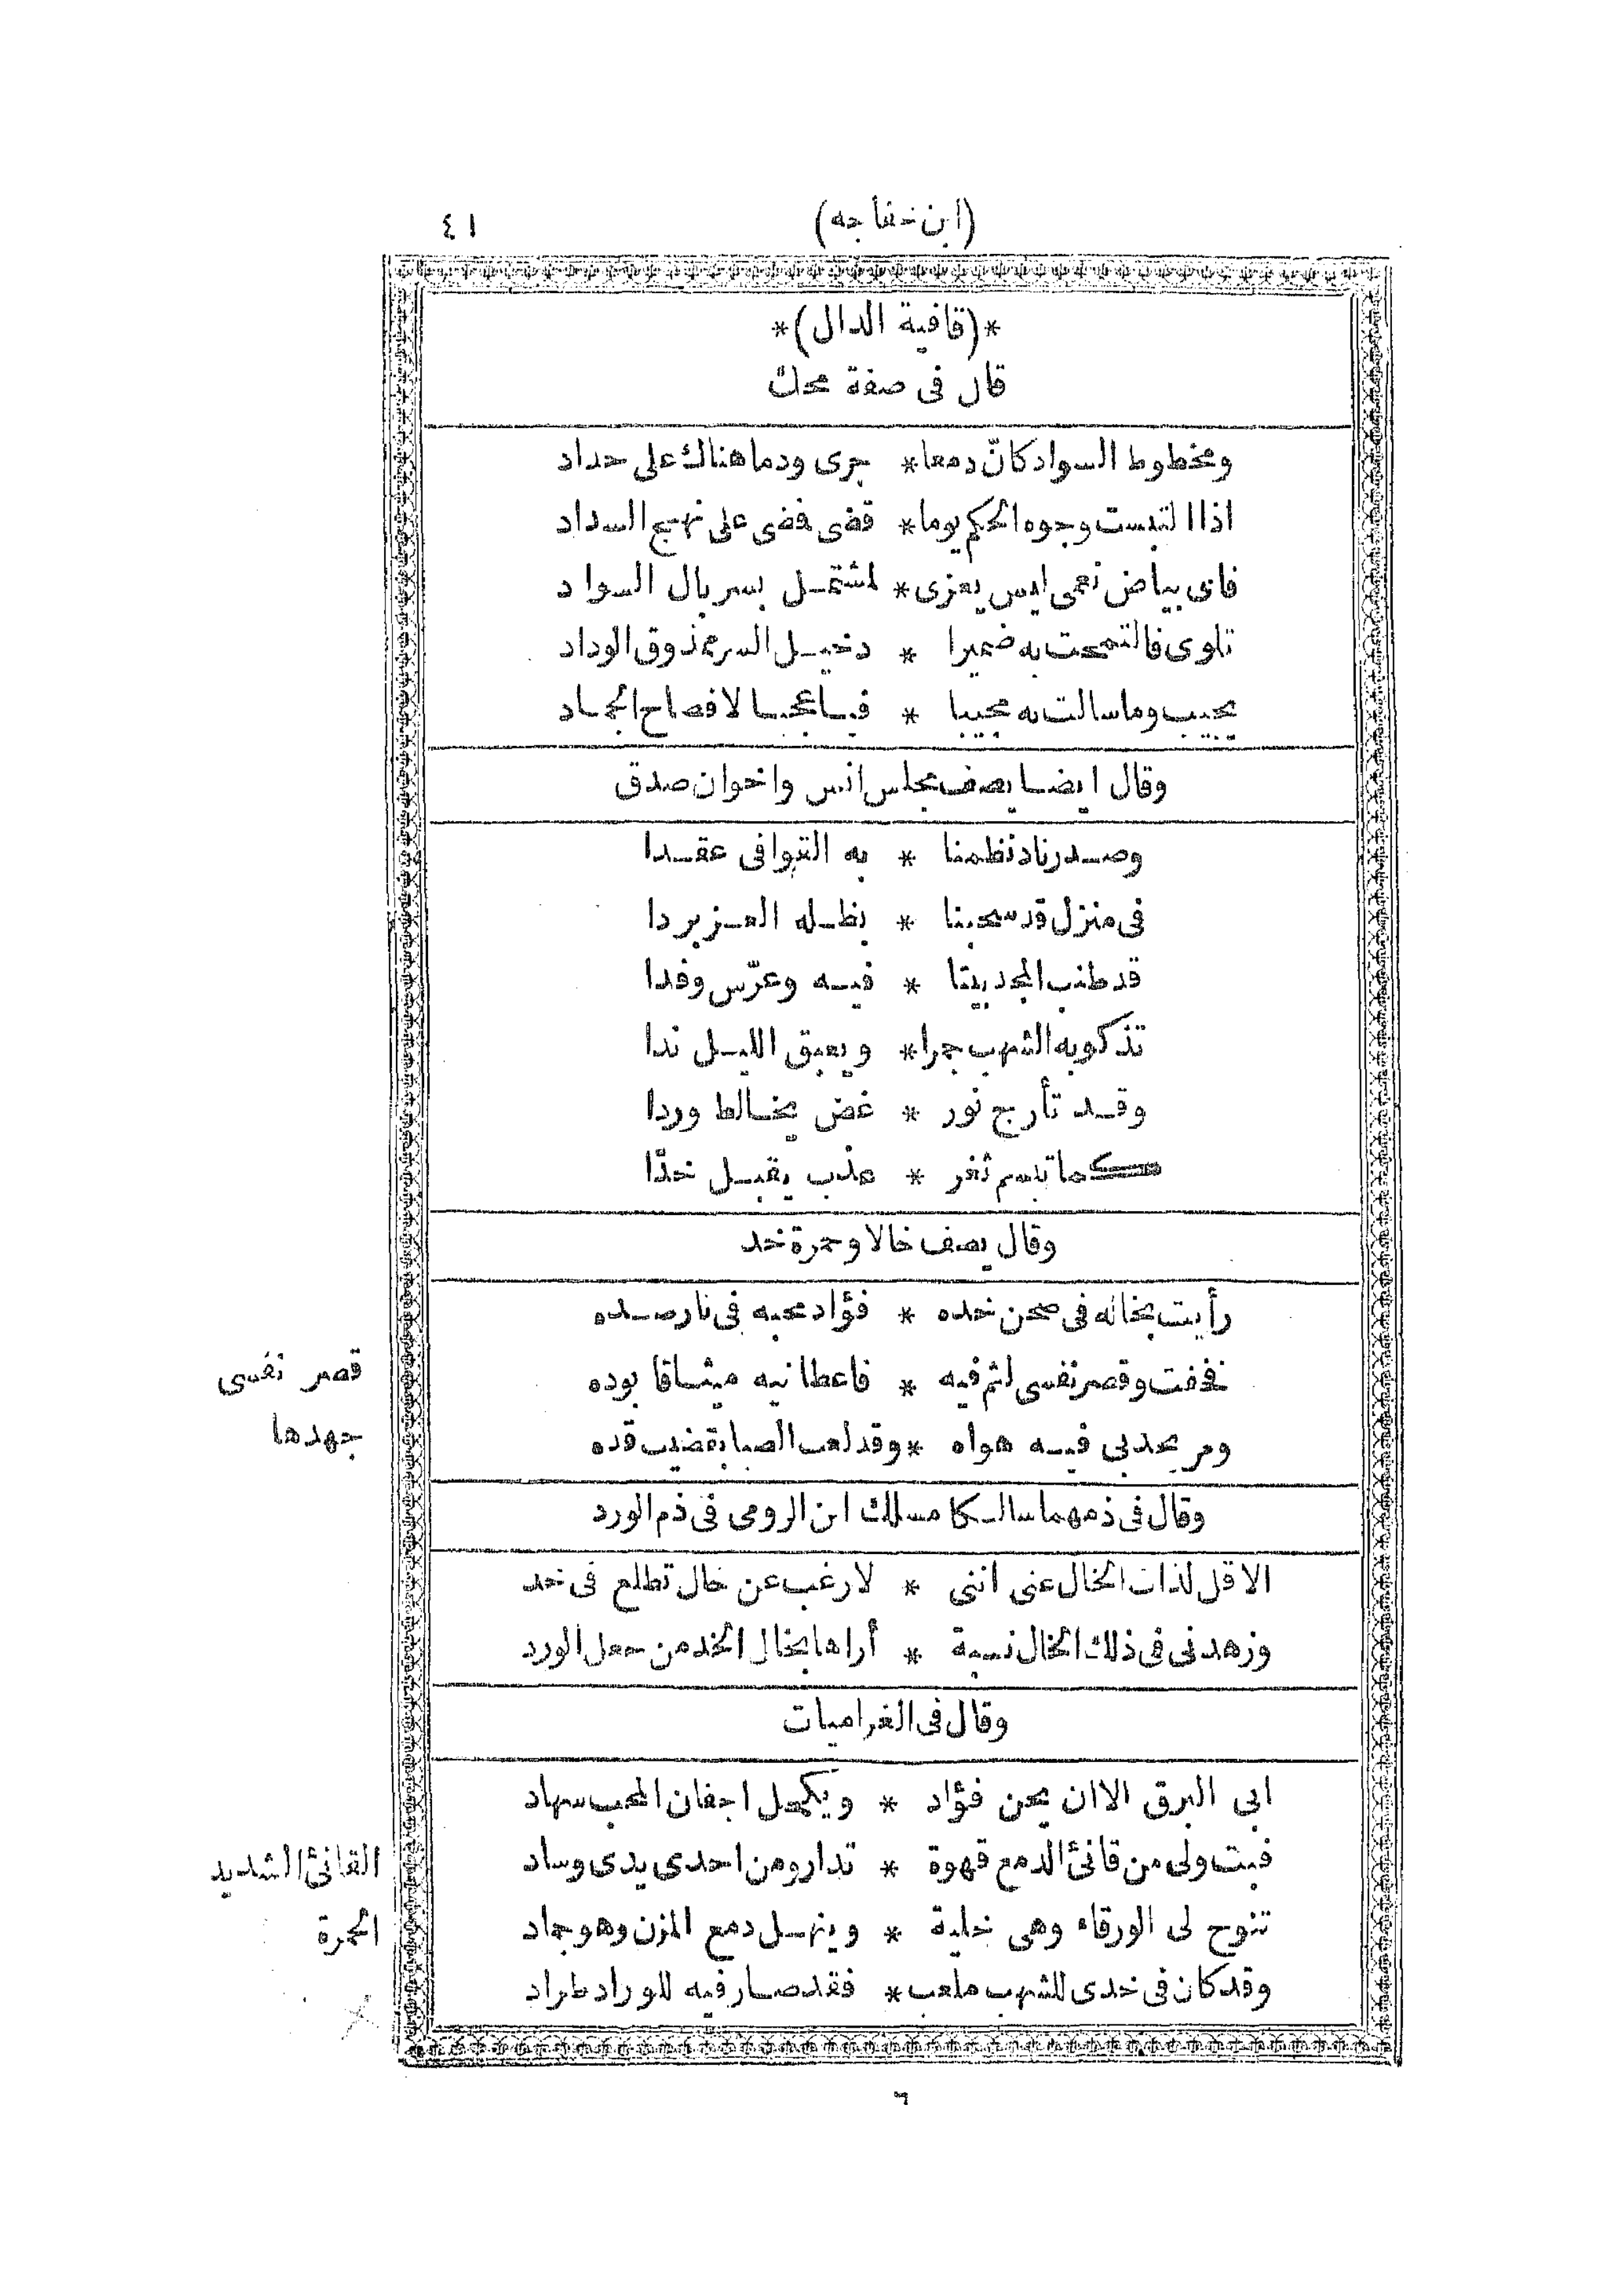 (ابن خفاجه) ٤١
*(قافية الدال)*
قال فى صفة محك
ومخطوط السواد كانّ دمعا * جرى ودما هناك على حداد
اذا التبست وجوه الحكم يوما * قضى فضى على نهج السداد
فاى بياض نعمى ليس يعزى * لمشتمل بسربال السواد
تلوى فالتمحت به ضميرا * دخيل السر ممذوق الوداد
يجيب وما سالت به مجيبا * فيا عجبا لافصاح الجماد
وقال ايضا يصف مجلس انس واخوان صدق
وصدر ناد نظمنا * به القوافى عقدا
فى منزل قد سحبنا * بظله العز بردا
قد طنب المجد بيتا * فيه وعرّس وفدا
تذكو به الشهب جمرا * ويعبق الليل ندا
وقد تأرج نور * غض يخالط وردا
كما تبسم ثغر * عذب يقبل خدّا
وقال يصف خالا وحمرة خد
رأيت بخاله فى صحن خده * فؤاد محبه فى نار صده
فخفت وقصر نفسى لثم فيه * فاعطانيه ميثاقا بوده
ومر يجد بى فيه هواه * وقد لعب الصبا بقضيب قده
قصر نفسى
جهدها
وقال فى ذمهما سالكا مسلك ابن الرومى فى ذم الورد
الا قل لذات الخال عنى اننى * لارغب عن خال تطلع فى خد
وزهدنى فى ذلك الخال نسبة * أراها بخال الخد من جعل الورد
وقال فى الغراميات
ابى البرق الا ان يحن فؤاد * ويكحل اجفان المحب سهاد
فبت ولى من قانئ الدمع قهوة * تدار ومن احدى يدى وساد
تنوح لى الورقاء وهى خلية * وينهل دمع المزن وهو جماد
وقد كان فى خدى للشهب ملعب * فقد صار فيه للوراد طراد
القانئ الشديد
الحمرة
٦